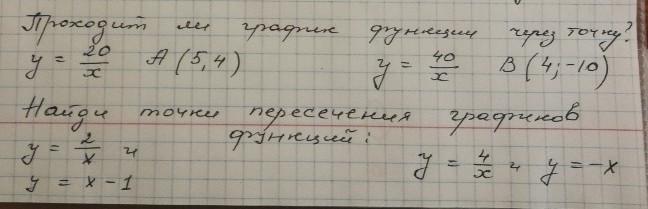 Проходит ли график функции через точку?
y = 20/x A (5,4) y = 40/x B (4;-10)
Найди точки пересечения графиков
функций:
y = 2/x и y = 4/x и y = -x
y = x - 1